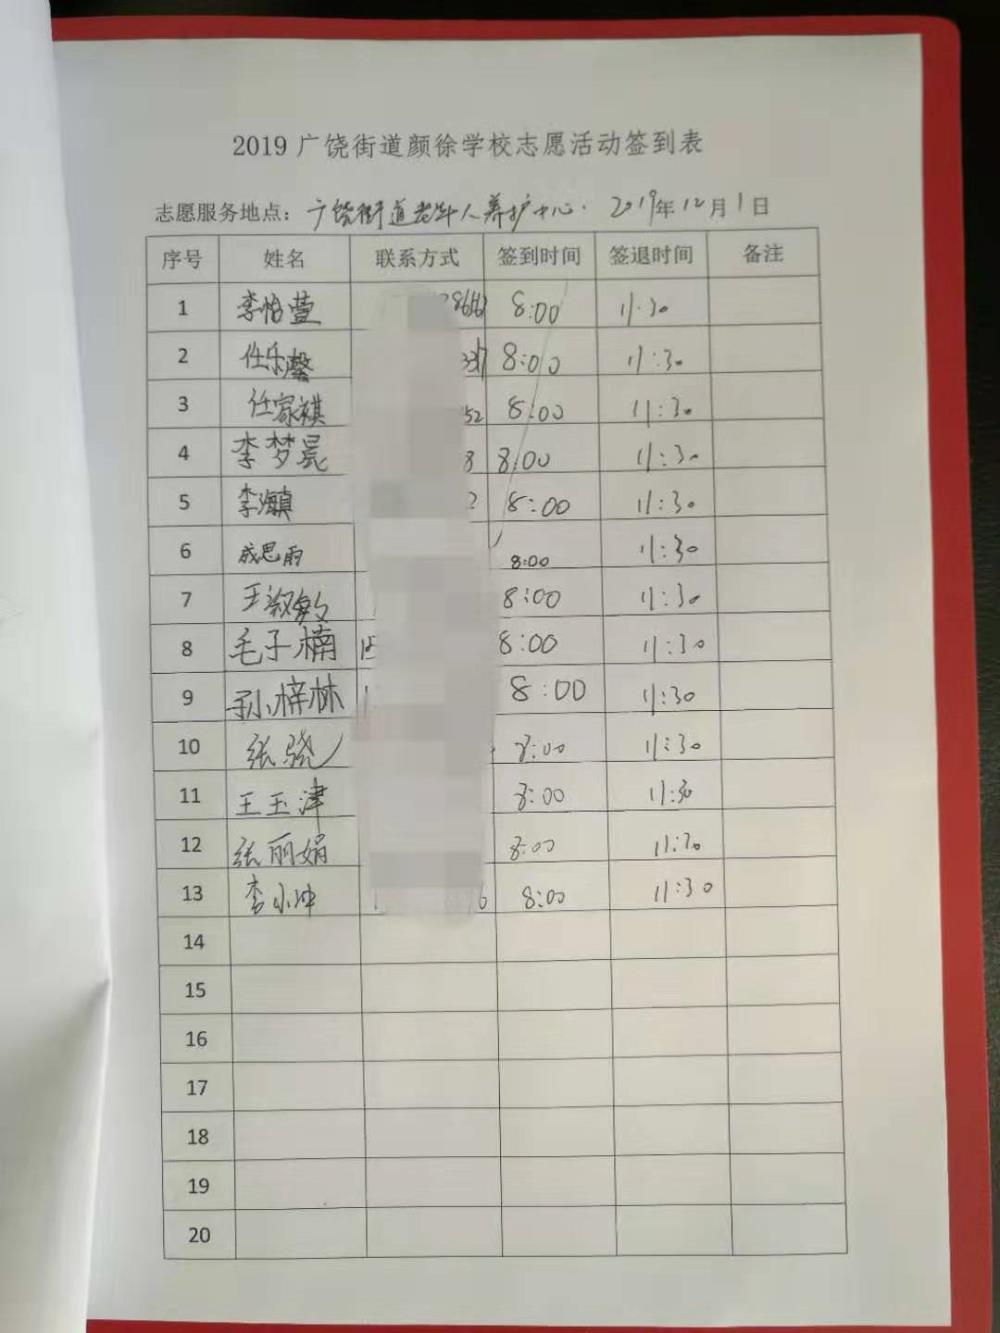 2019 广饶街道颜徐学校志愿活动签到表
志愿服务地点：广饶街道老年人养护中心. 2019年12月1日
序号 姓名 联系方式 签到时间 签退时间 备注
1 李怡萱 8:00 11:30
2 任乐馨 8:00 11:30
3 任家祺 52 8:00 11:30
4 李梦晁 8 8:00 11:30
5 李海真 8:00 11:30
6 成思雨 8:00 11:30
7 王淑敏 8:00 11:30
8 毛子楠 8:00 11:30
9 孙梓林 8:00 11:30
10 张骁 8:00 11:30
11 王玉津 8:00 11:30
12 张丽娟 8:00 11:30
13 李小冲 6 8:00 11:30
14
15
16
17
18
19
20